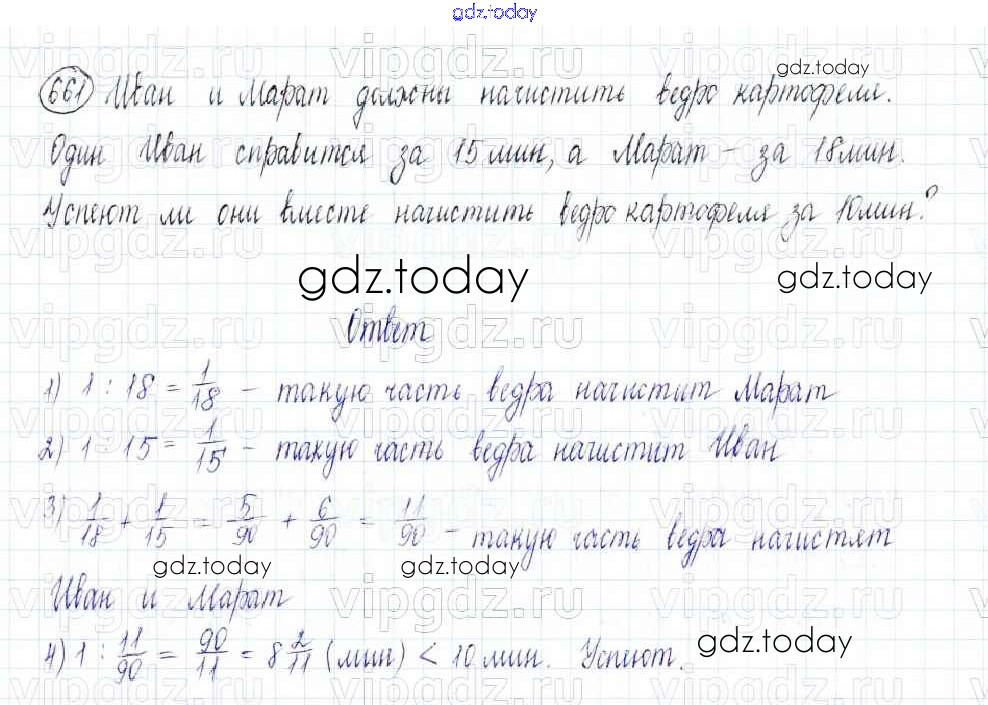 gdz.today
661 Иван и Марат должны начистить ведро картофеля.
gdz.today
Один Иван справится за 15 мин, а Марат – за 18 мин.
Успеют ли они вместе начистить ведро картофеля за 10 мин?
gdz.today gdz.today
Ответ
1) 1 : 18 = 1/18 – такую часть ведра начистит Марат
2) 1 : 15 = 1/15 – такую часть ведра начистит Иван
3) 1/18 + 1/15 = 5/90 + 6/90 = 11/90 – такую часть ведра начистят
gdz.today gdz.today
Иван и Марат
4) 1 : 11/90 = 90/11 = 8 2/11 (мин) < 10 мин. Успеют.
gdz.today
vipgdz.ru